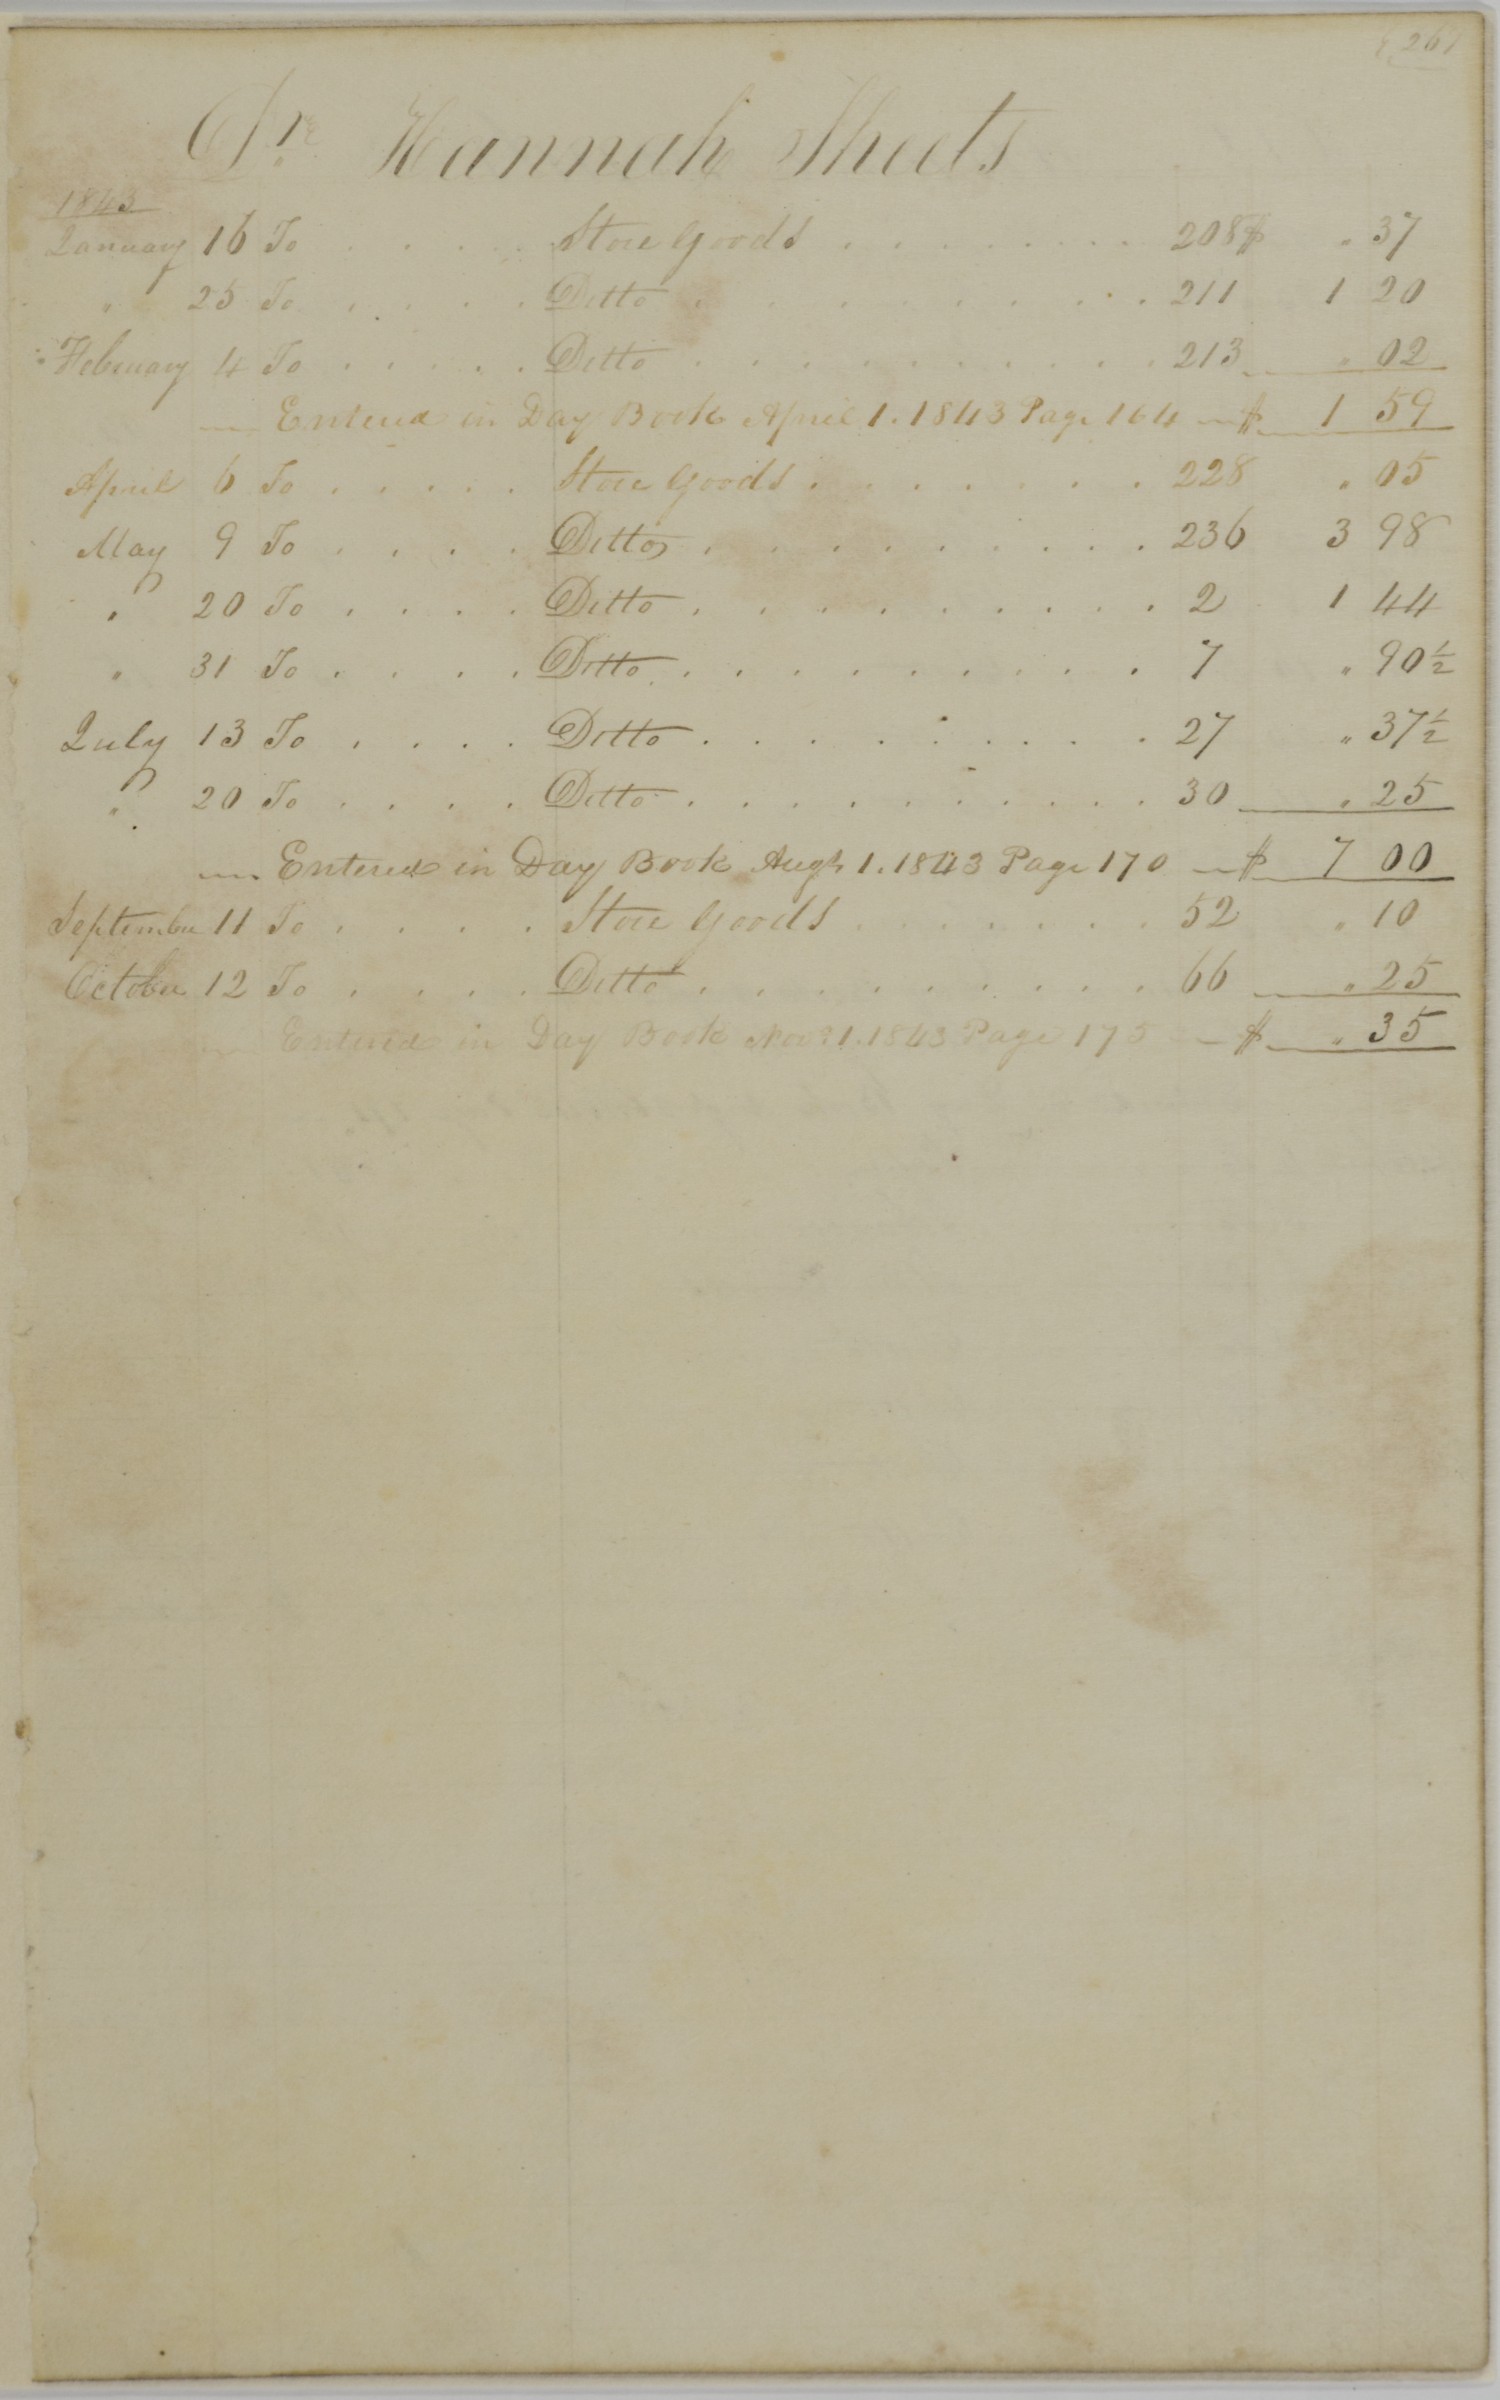 267
Dr. Hannah Sheets
1843
January 16 To . . . . Store Goods . . . . . . . 208 $ " 37
" 25 To . . . . Ditto . . . . . . . . . 211 1 20
February 4 To . . . . . Ditto . . . . . . . . . 213 " 02
— Entered in Day Book April 1. 1843 Page 164 — $ 1 59
April 6 To . . . . . Store Goods . . . . . . . 228 " 05
May 9 To . . . . Ditto . . . . . . . . . 236 3 98
" 20 To . . . . Ditto . . . . . . . . . 2 1 44
" 31 To . . . . Ditto . . . . . . . . . 7 " 90 1/2
July 13 To . . . . Ditto . . . . . . . . . 27 " 37 1/2
" 20 To . . . . Ditto . . . . . . . . . 30 " 25
— Entered in Day Book Augt 1. 1843 Page 170 — $ 7 00
September 11 To . . . . Store Goods . . . . . . . 52 " 10
October 12 To . . . . Ditto . . . . . . . . . 66 " 25
— Entered in Day Book Novr 1. 1843 Page 175 — $ " 35